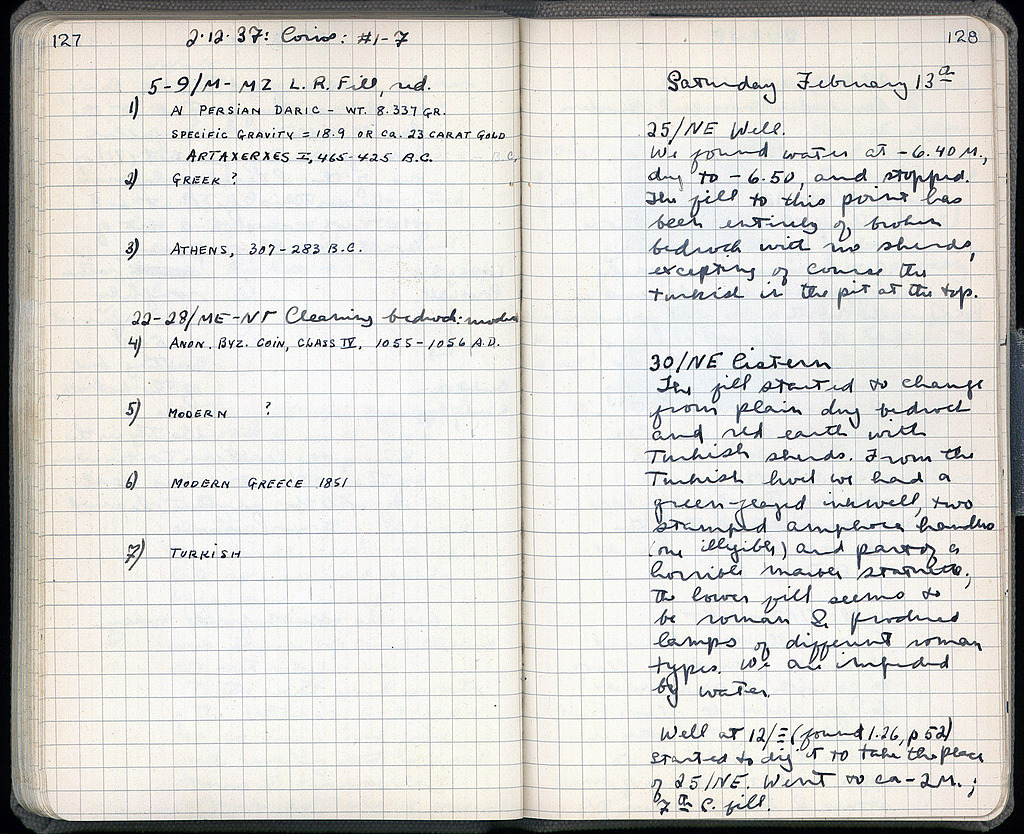 127
2·12·37: Coins: #1-7
5-9/M-MZ L. R. Fill, red.
1) AV PERSIAN DARIC - WT. 8.337 GR.
SPECIFIC GRAVITY = 18.9 OR CA. 23 CARAT GOLD
ARTAXERXES I, 465-425 B.C.
2) GREEK ?
3) ATHENS, 307-283 B.C.
22-28/ME-NΓ Cleaning bedrock: modern
4) ANON. BYZ. COIN, CLASS IV, 1055-1056 A.D.
5) MODERN ?
6) MODERN GREECE 1851
7) TURKISH
128
Saturday February 13th
25/NE Well.
We found water at -6.40 M.,
dug to -6.50, and stopped.
The fill to this point has
been entirely of broken
bedrock with no sherds,
excepting of course the
Turkish in the pit at the top.
30/NE Cistern
The fill started to change
from plain dug bedrock
and red earth with
Turkish sherds. From the
Turkish level we had a
green-glazed inkwell, two
stamped amphora handles
(one illegible) and part of a
horrible marble statuette;
the lower fill seems to
be roman & produced
lamps of different roman
types. We are impeded
by water.
Well at 12/Ξ (found 1.26, p 52)
started to dig it to take the place
of 25/NE. Went to ca -2M.;
7th C. fill.